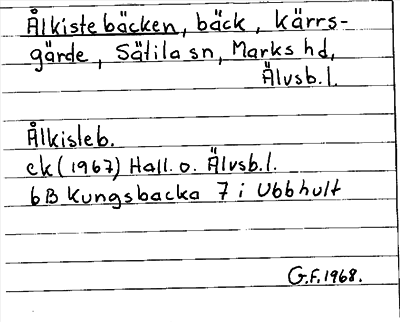 Ålkistebäcken, bäck, Kärrs-
gärde, Sätila sn, Marks hd,
Älvsb. l.
Ålkisteb.
ek (1967) Hall. o. Älvsb. l.
bB Kungsbacka 7 i Ubbhult
G.F. 1968.